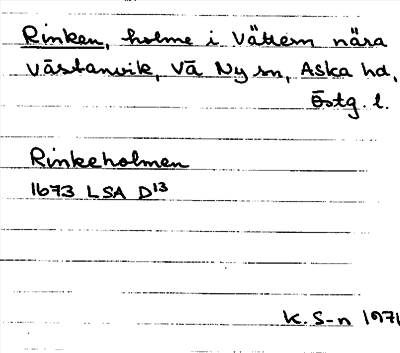 Rinken, holme i Vättern nära
Västanvik, Vä Ny sn, Aska hd,
Östg. l.
Rinkeholmen
1673 LSA D13
K. S-n 1971